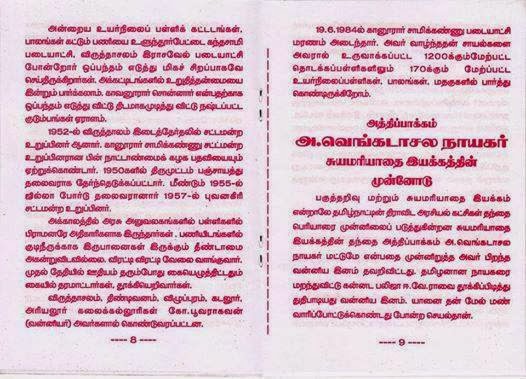 அன்றைய உயர்நிலைப் பள்ளிக் கட்டடங்கள்,
பாலங்கள் கட்டும் பணியை உளுந்தூர்பேட்டை கந்தசாமி
படையாட்சி, விருத்தாசலம் இராசவேல் படையாட்சி
போன்றோர் ஒப்பந்தம் எடுத்து மிகச் சிறப்பாகவே
செய்திருக்கிறார்கள். அக்கட்டிடங்களில் உறுதித்தன்மையை
இன்றும் பார்க்கலாம். காவனூரார் சொன்னார் என்பதற்காக
ஒப்பந்தம் எடுத்து விட்டு திடமாகமுடித்து விட்டு நஷ்டப்பட்ட
குடும்பங்கள் ஏராளம்.
1952-ல் விருத்தாலம் இடைத்தேர்தலில் சட்டமன்ற
உறுப்பினர் ஆனார். கானூரார் சாமிக்கண்ணு சட்டமன்ற
உறுப்பினரான பின் நாட்டாண்மைக் கழக பதவியையும்
ஏற்றுக்கொண்டார். 1950களில் திருமுட்டம் பஞ்சாயத்து
தலைவராக தேர்ந்தெடுக்கப்பட்டார். மீண்டும் 1955-ல்
ஜில்லா போர்டு தலைவரானார் 1957-ல் புவனகிரி
சட்டமன்ற உறுப்பினர்.
அக்காலத்தில் அரசு அலுவலகங்களில் பள்ளிகளில்
பிராமனரே அதிகாரிகளாக இருந்தார்கள். பணியிடங்களில்
குடிநீருக்காக இருபானைகள் இருக்கும் தீண்டாமை
அகன்றுவிடவில்லை. விரட்டி விரட்டி வேலை வாங்குவார்.
முதல் தேதியில் ஊதியம் தரும்போது கையெழுத்திட்டதும்
கையில் தரமாட்டார்கள், தூக்கியெறிவார்கள்.
விருத்தாசலம், திண்டிவனம், விழுப்புரம், கடலூர்,
அரியலூர் கலைக்கல்லூரிகள் கோ.பூவராகவன்
(வன்னியர்) அவர்களால் கொண்டுவரப்பட்டன.
---- 8 ----
19.6.1984ல் கானூரார் சாமிக்கண்ணு படையாட்சி
மரணம் அடைந்தார். அவர் வாழ்ந்ததன் சாயல்களை
அவரால் உருவாக்கப்பட்ட 1200க்கும்மேற்பட்ட
தொடக்கப்பள்ளிகளிலும் 170க்கும் மேற்பட்ட
உயர்நிலைப்பள்ளிகள், பாலங்கள், மதகுகளில் பார்த்து
கொண்டிருக்கிறோம்.
அத்திப்பாக்கம்
அ.வெங்கடாசல நாயகர்
சுயமரியாதை இயக்கத்தின்
முன்னோடு
பகுத்தறிவு மற்றும் சுயமரியாதை இயக்கம்
என்றாலே தமிழ்நாட்டின் திராவிட அரசியல் கட்சிகள் தந்தை
பெரியாரை முன்னிலைப் படுத்துகின்றன சுயமரியாதை
இயக்கத்தின் தந்தை அத்திப்பாக்கம் அ.வெங்கடாசல
நாயகர் மட்டுமே என்பதை முன்னிறுத்த அவர் பிறந்த
வன்னிய இனம் தவறிவிட்டது. தமிழனான நாயகரை
மறந்துவிட்டு கன்னட பலிஜா ஈ.வே.ராவை தூக்கிப்பிடித்து
துதிபாடியது வன்னிய இனம். யானை தன் மேல் மண்
வாரிப்போட்டுக்கொண்டது போன்ற செயல்தான்.
---- 9 ----